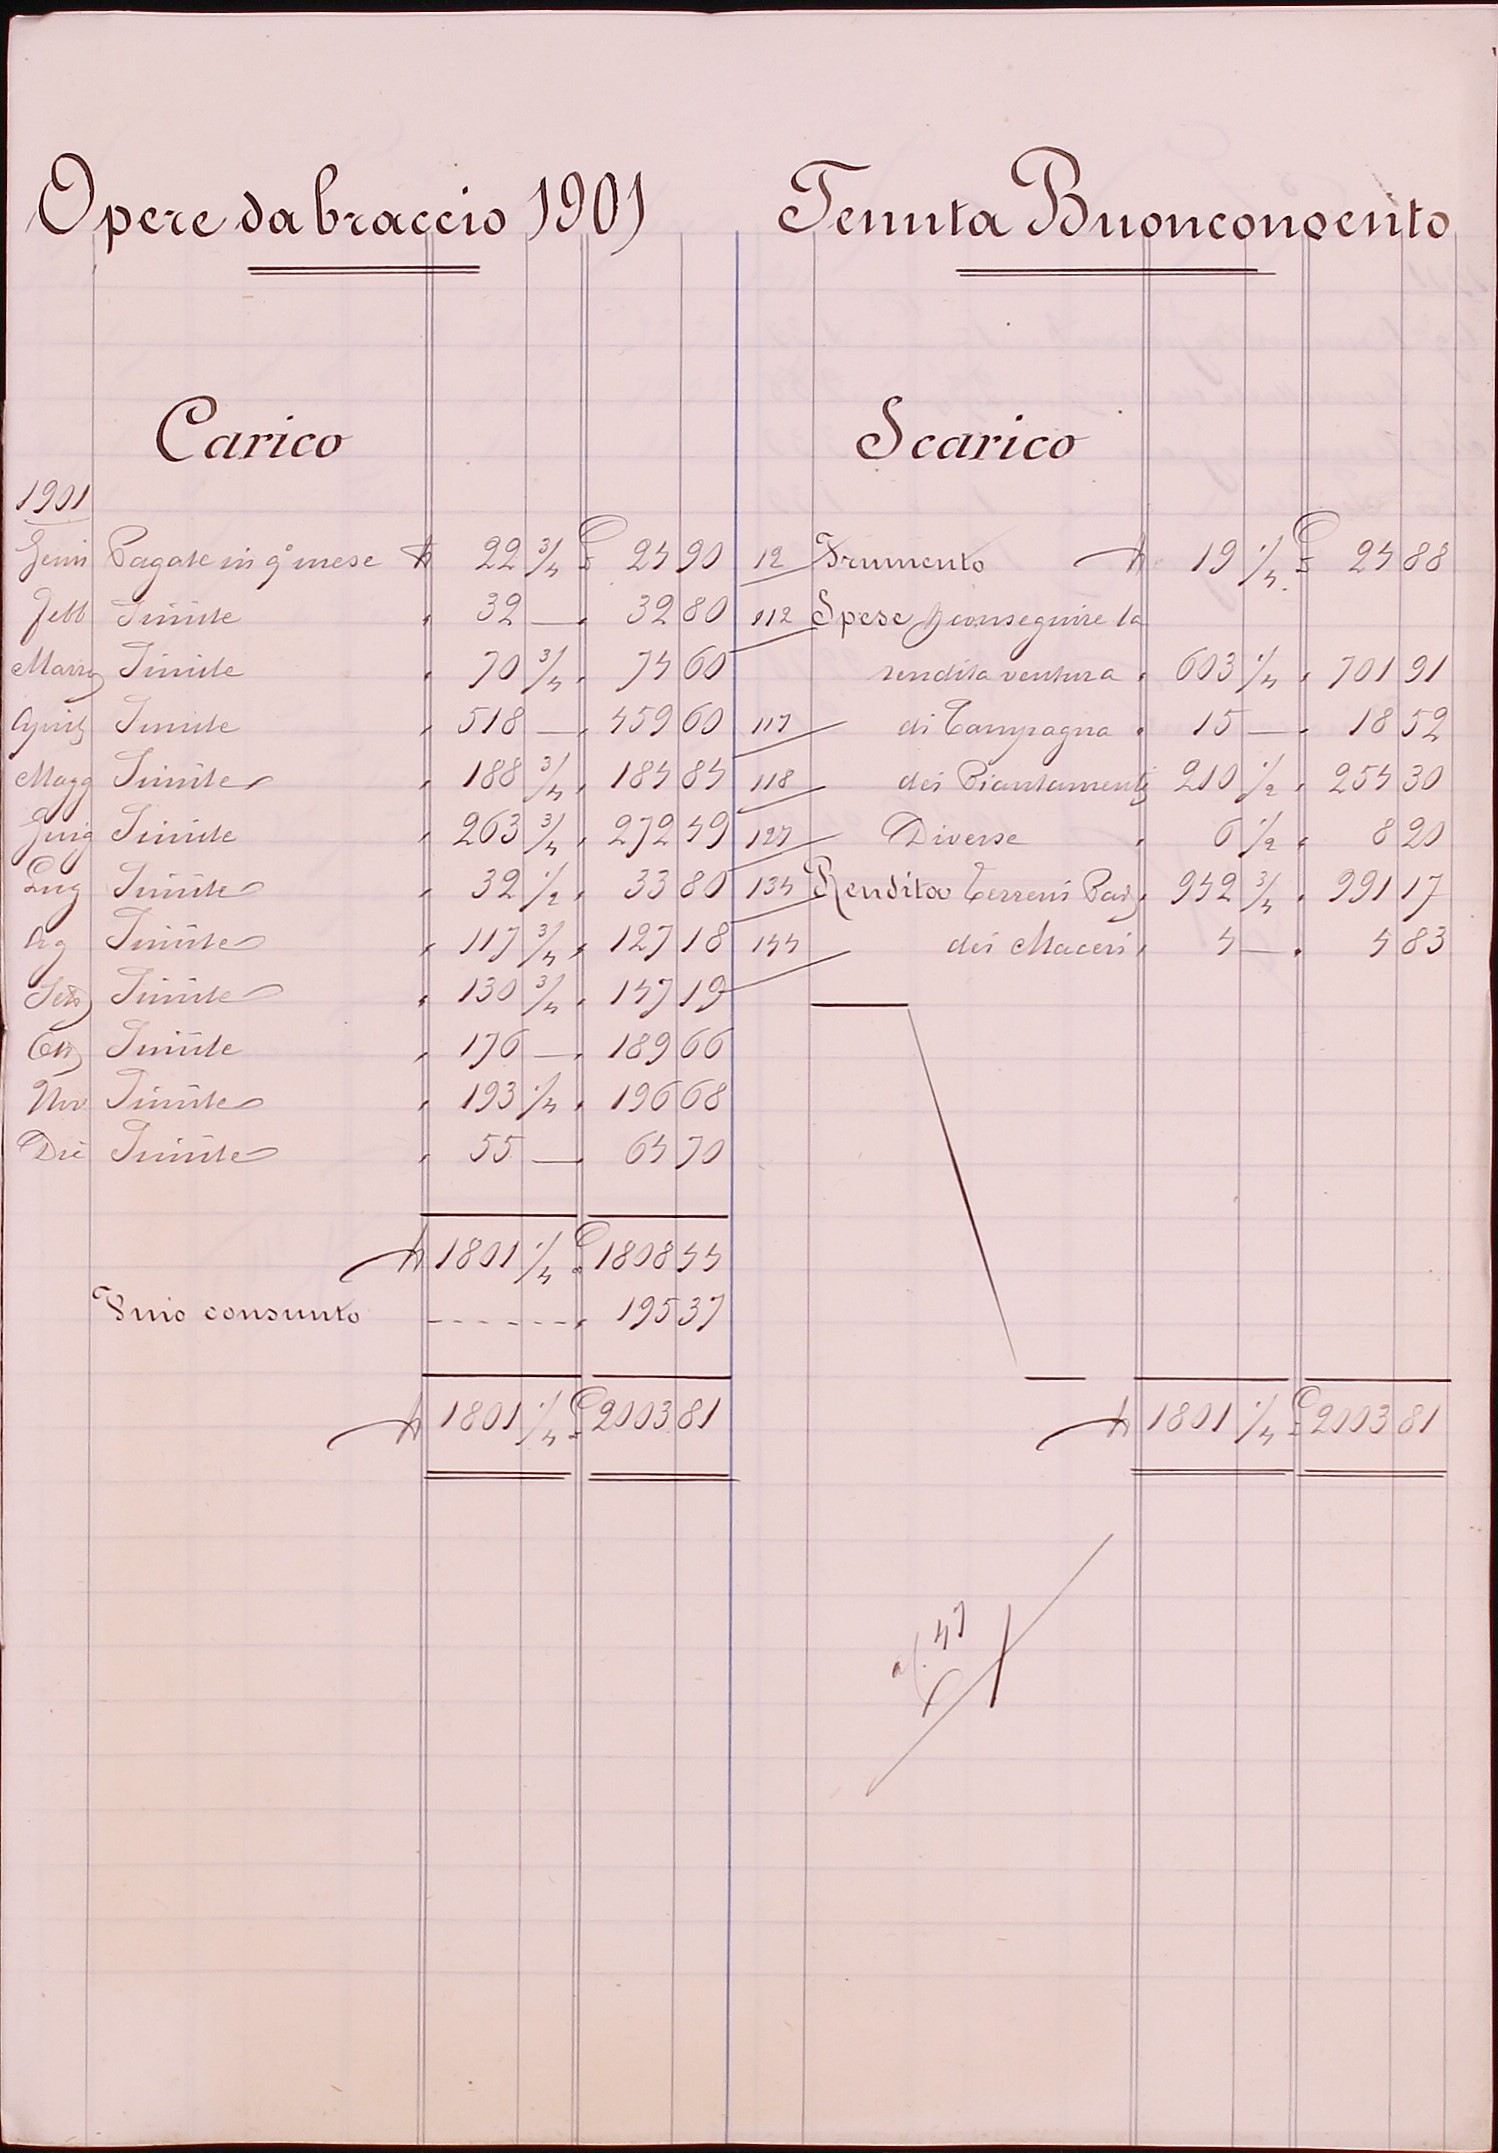 Opere da braccio 1901
Tenuta Buonconvento
Carico
1901
Genn Pagate in q° mese N 22 3/4 £ 24 90
Febb Simile " 32 — " 32 80
Marzo Simile " 70 3/4 " 74 60
Aprile Simile " 518 — " 459 60
Magg Simile " 188 3/4 " 184 84
Giug Simile " 263 3/4 " 272 49
Lug Simile " 32 1/2 " 33 80
Ag Simile " 117 3/4 " 127 18
Sett Simile " 130 3/4 " 147 19
Ott Simile " 176 — " 189 66
Nov Simile " 193 1/4 " 196 68
Dic Simile " 55 — " 64 70
N 1801 1/4 £ 1808 44
Vino consunto - - - - - " 195 37
N 1801 1/4 £ 2003 81
Scarico
12 Frumento N 19 1/4 £ 24 88
112 Spese p conseguire la
rendita ventura " 603 1/4 " 701 91
117 di Campagna " 15 — " 18 52
118 dei Piantamenti 210 1/2 " 254 30
127 Diverse " 6 1/2 " 8 20
134 Rendita Terreni Pad. " 942 3/4 " 991 17
144 dei Maceri " 4 — " 4 83
N 1801 1/4 £ 2003 81
47